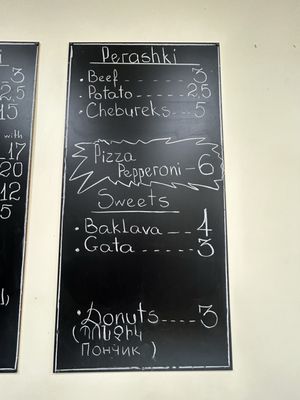 i
3
2.5
15
with
17
20
12
5
)
Perashki
• Beef ------ 3
• Potato ---- 2.5
• Chebureks -- 5
Pizza
Pepperoni - 6
Sweets
• Baklava --- 4
• Gata ---- 3
• Donuts ---- 3
(ՊՈՆՉԻԿ
Пончик )